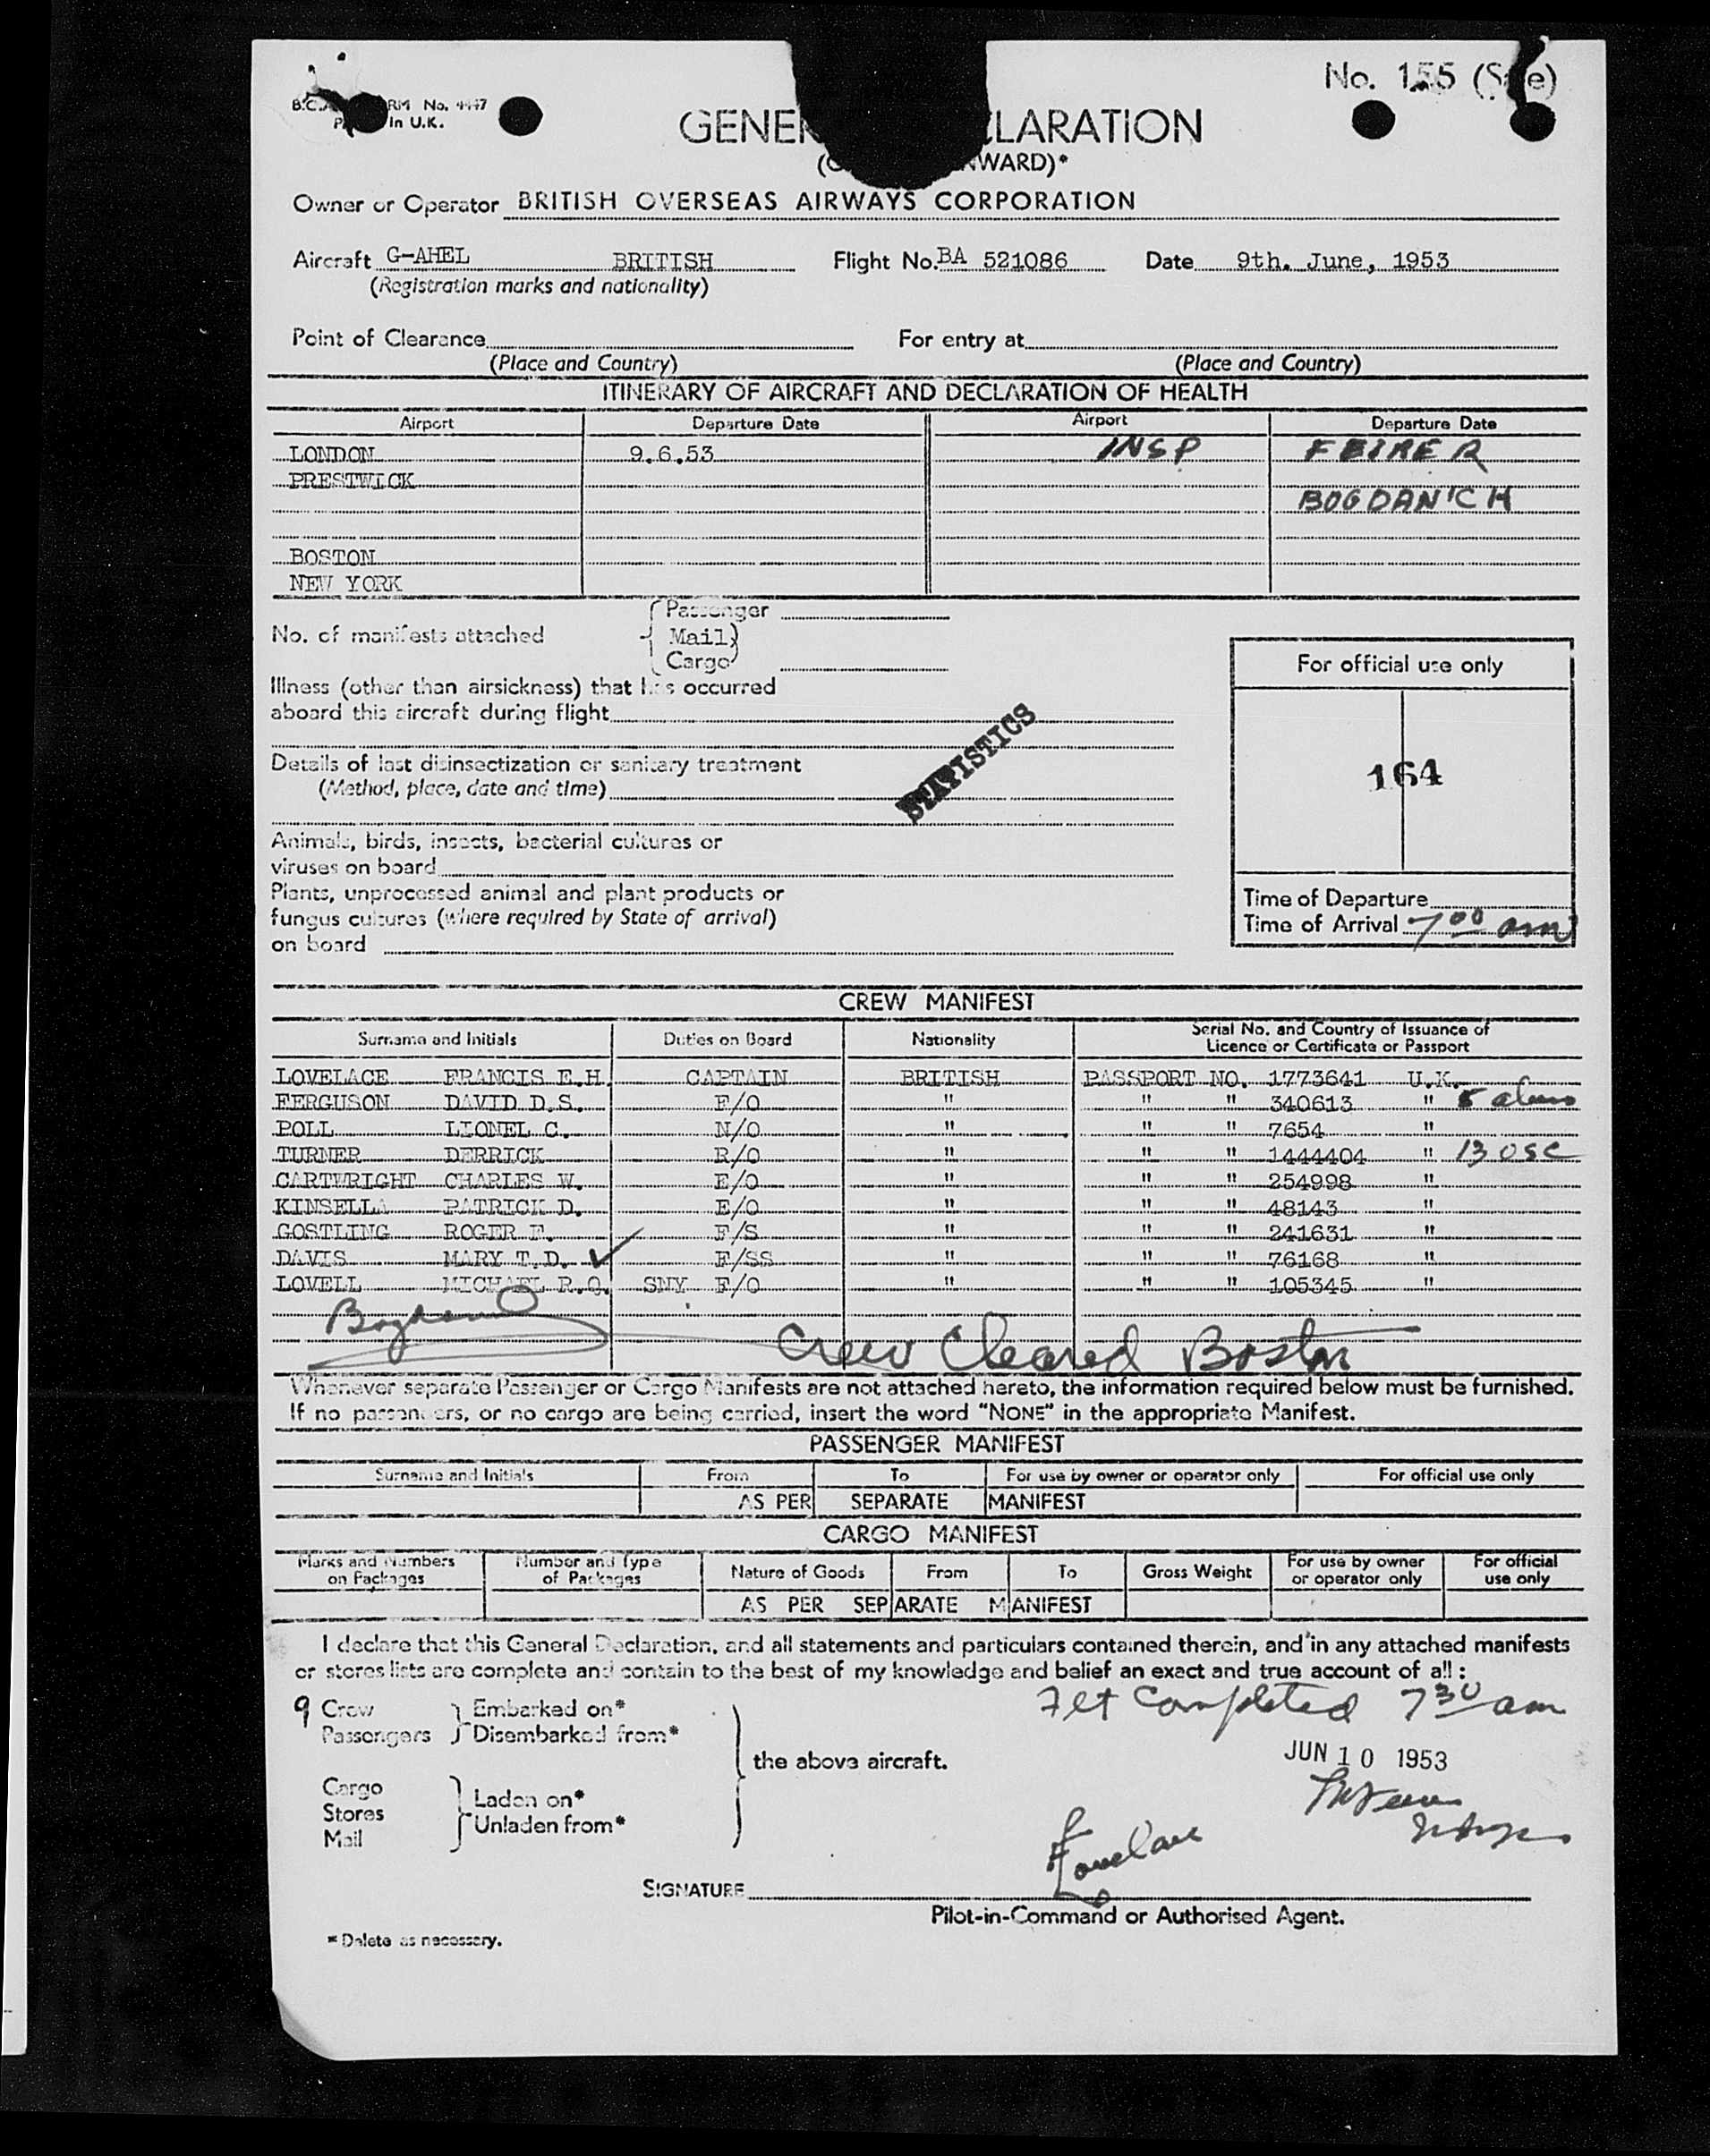 No. 155
RM No. 4447
In U.K.
GENE LARATION
WARD)*
Owner or Operator BRITISH OVERSEAS AIRWAYS CORPORATION
Aircraft G-AHEL BRITISH Flight No. BA 521086 Date 9th. June, 1953
(Registration marks and nationality)
Point of Clearance For entry at
(Place and Country) (Place and Country)
ITINERARY OF AIRCRAFT AND DECLARATION OF HEALTH
Airport Departure Date Airport Departure Date
LONDON 9.6.53 INSP FEIRER
PRESTWICK
BOGDANICH
BOSTON
NEW YORK
Passenger
No. of manifests attached Mail
Cargo
For official use only
Illness (other than airsickness) that has occurred
aboard this aircraft during flight
STATISTICS
Details of last disinsectization or sanitary treatment
(Method, place, date and time)
164
Animals, birds, insects, bacterial cultures or
viruses on board
Plants, unprocessed animal and plant products or
fungus cultures (where required by State of arrival)
on board
Time of Departure
Time of Arrival 7 00 am
CREW MANIFEST
Surname and Initials Duties on Board Nationality Serial No. and Country of Issuance of
Licence or Certificate or Passport
LOVELACE FRANCIS E.H. CAPTAIN BRITISH PASSPORT NO. 1773641 U.K.
FERGUSON DAVID D.S. F/O " " " 340613 " 5
POLL LIONEL C. N/O " " " 7654 "
TURNER DERRICK R/O " " " 1444404 " 13 USC
CARTWRIGHT CHARLES W. E/O " " " 254998 "
KINSELLA PATRICK D. E/O " " " 48143 "
GOSTLING ROGER F. F/S " " " 241631 "
DAVIS MARY T.D. F/SS " " " 76168 "
LOVELL MICHAEL R.O. SNY F/O " " " 105345 "
Crew Cleared Boston
Whenever separate Passenger or Cargo Manifests are not attached hereto, the information required below must be furnished.
If no passengers, or no cargo are being carried, insert the word "NONE" in the appropriate Manifest.
PASSENGER MANIFEST
Surname and Initials From To For use by owner or operator only For official use only
AS PER SEPARATE MANIFEST
CARGO MANIFEST
Marks and Numbers on Packages Number and Type of Packages Nature of Goods From To Gross Weight For use by owner or operator only For official use only
AS PER SEPARATE MANIFEST
I declare that this General Declaration, and all statements and particulars contained therein, and in any attached manifests
or stores lists are complete and contain to the best of my knowledge and belief an exact and true account of all :
Flt Completed 7 30 am
9 Crew Embarked on*
Passengers Disembarked from*
the above aircraft.
JUN 10 1953
Cargo
Stores Laden on*
Mail Unladen from*
Lovelace
SIGNATURE
Pilot-in-Command or Authorised Agent.
* Delete as necessary.